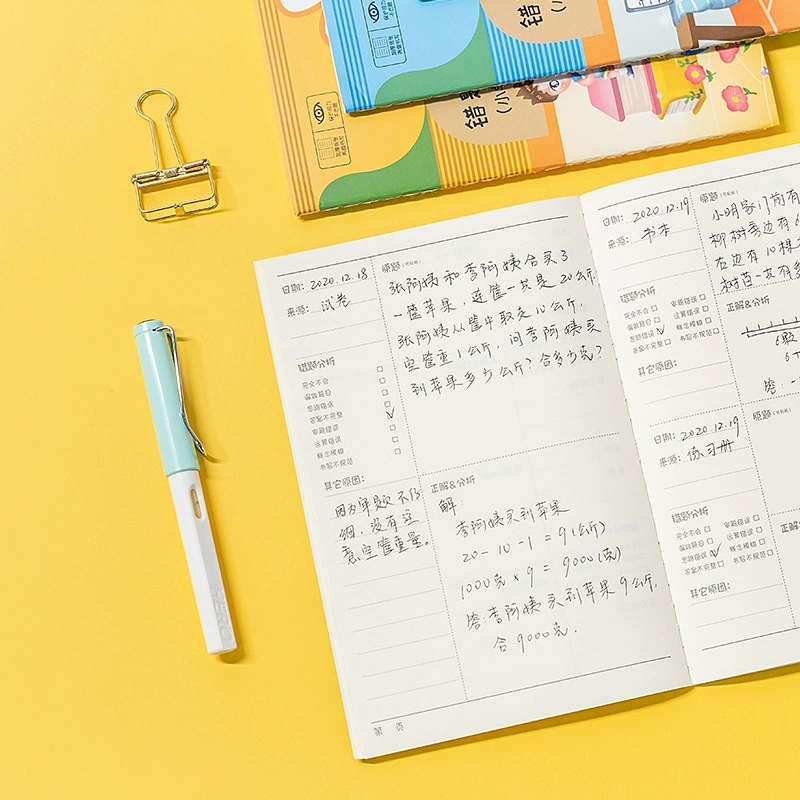 保护视力
错
(小
保护视力
错
(小
日期: 2020.12.18
来源: 试卷
错题分析
完全不会
偏做题目
思路错误
答案不完整
审题错误
运算错误
概念模糊
书写不规范
其它原因:
因为审题不仔
细,没有注
意空筐重量。
原题
张阿姨和李阿姨合买了
一筐苹果,连筐一共是20公斤
张阿姨从筐中取走10公斤,
空筐重1公斤,问李阿姨买
到苹果多少公斤?合多少克?
正解&分析
解:
李阿姨买到苹果
20-10-1=9(公斤)
1000克×9=9000(克)
答:李阿姨买到苹果9公斤,
合9000克.
第 页
日期: 2020.12.19
来源: 书本
错题分析
完全不会 审题错误
偏做题目 运算错误
思路错误 概念模糊
答案不完整 书写不规范
其它原因:
原题
小明家门前有
柳树旁边有6
右边有10棵
正解&分析
6颗
答:一
日期: 2020.12.19
来源: 练习册
错题分析
完全不会 审题错误
偏做题目 运算错误
思路错误 概念模糊
答案不完整 书写不规范
其它原因:
原题
正解
HERO